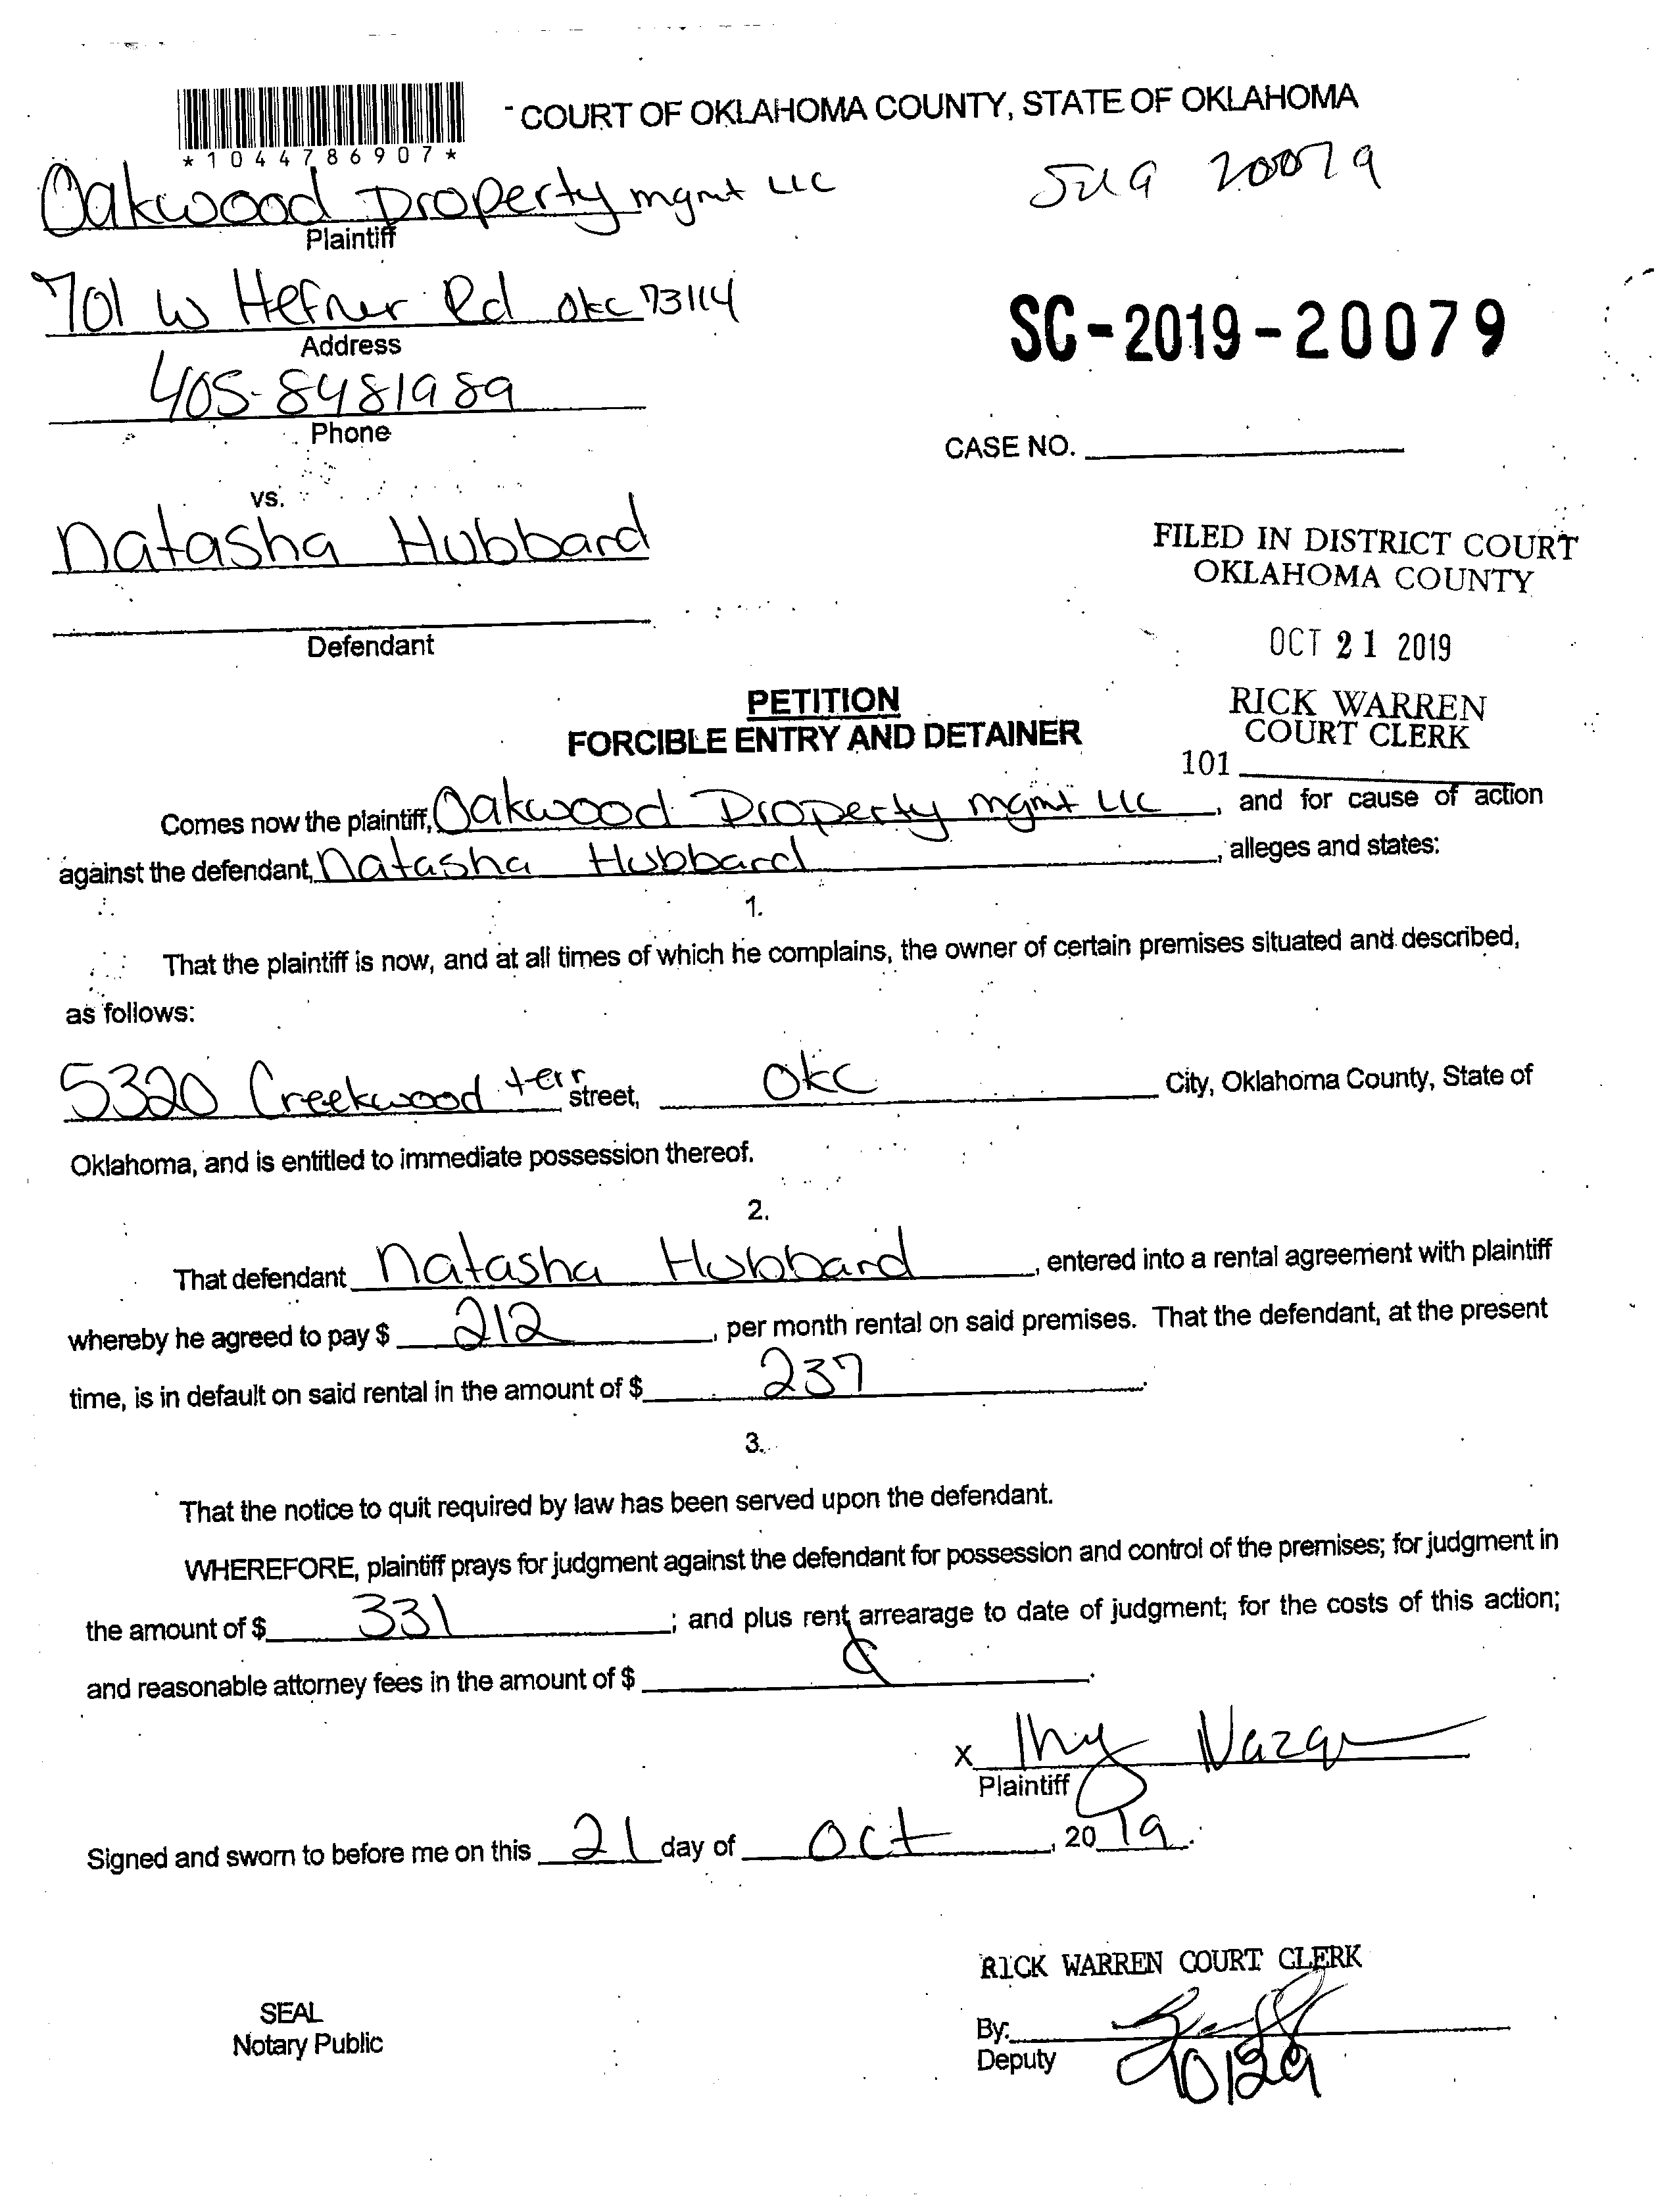 COURT OF OKLAHOMA COUNTY, STATE OF OKLAHOMA
*1044786907*
Oakwood Property mgmt LLC
Plaintiff
701 W Hefner Rd OKC 73114
Address
SC-2019-20079
405-8481989
Phone
CASE NO.
vs.
Natasha Hubbard
FILED IN DISTRICT COURT
OKLAHOMA COUNTY
Defendant
OCT 21 2019
PETITION
FORCIBLE ENTRY AND DETAINER
RICK WARREN
COURT CLERK
101
Comes now the plaintiff, Oakwood Property mgmt LLC, and for cause of action
against the defendant, Natasha Hubbard, alleges and states:
1.
That the plaintiff is now, and at all times of which he complains, the owner of certain premises situated and described,
as follows:
5320 Creekwood terr street, OKC City, Oklahoma County, State of
Oklahoma, and is entitled to immediate possession thereof.
2.
That defendant Natasha Hubbard, entered into a rental agreement with plaintiff
whereby he agreed to pay $ 212, per month rental on said premises. That the defendant, at the present
time, is in default on said rental in the amount of $ 237.
3.
That the notice to quit required by law has been served upon the defendant.
WHEREFORE, plaintiff prays for judgment against the defendant for possession and control of the premises; for judgment in
the amount of $ 331; and plus rent arrearage to date of judgment; for the costs of this action;
and reasonable attorney fees in the amount of $.
x
Plaintiff
Signed and sworn to before me on this 21 day of Oct, 2019.
RICK WARREN COURT CLERK
SEAL
Notary Public
By:
Deputy